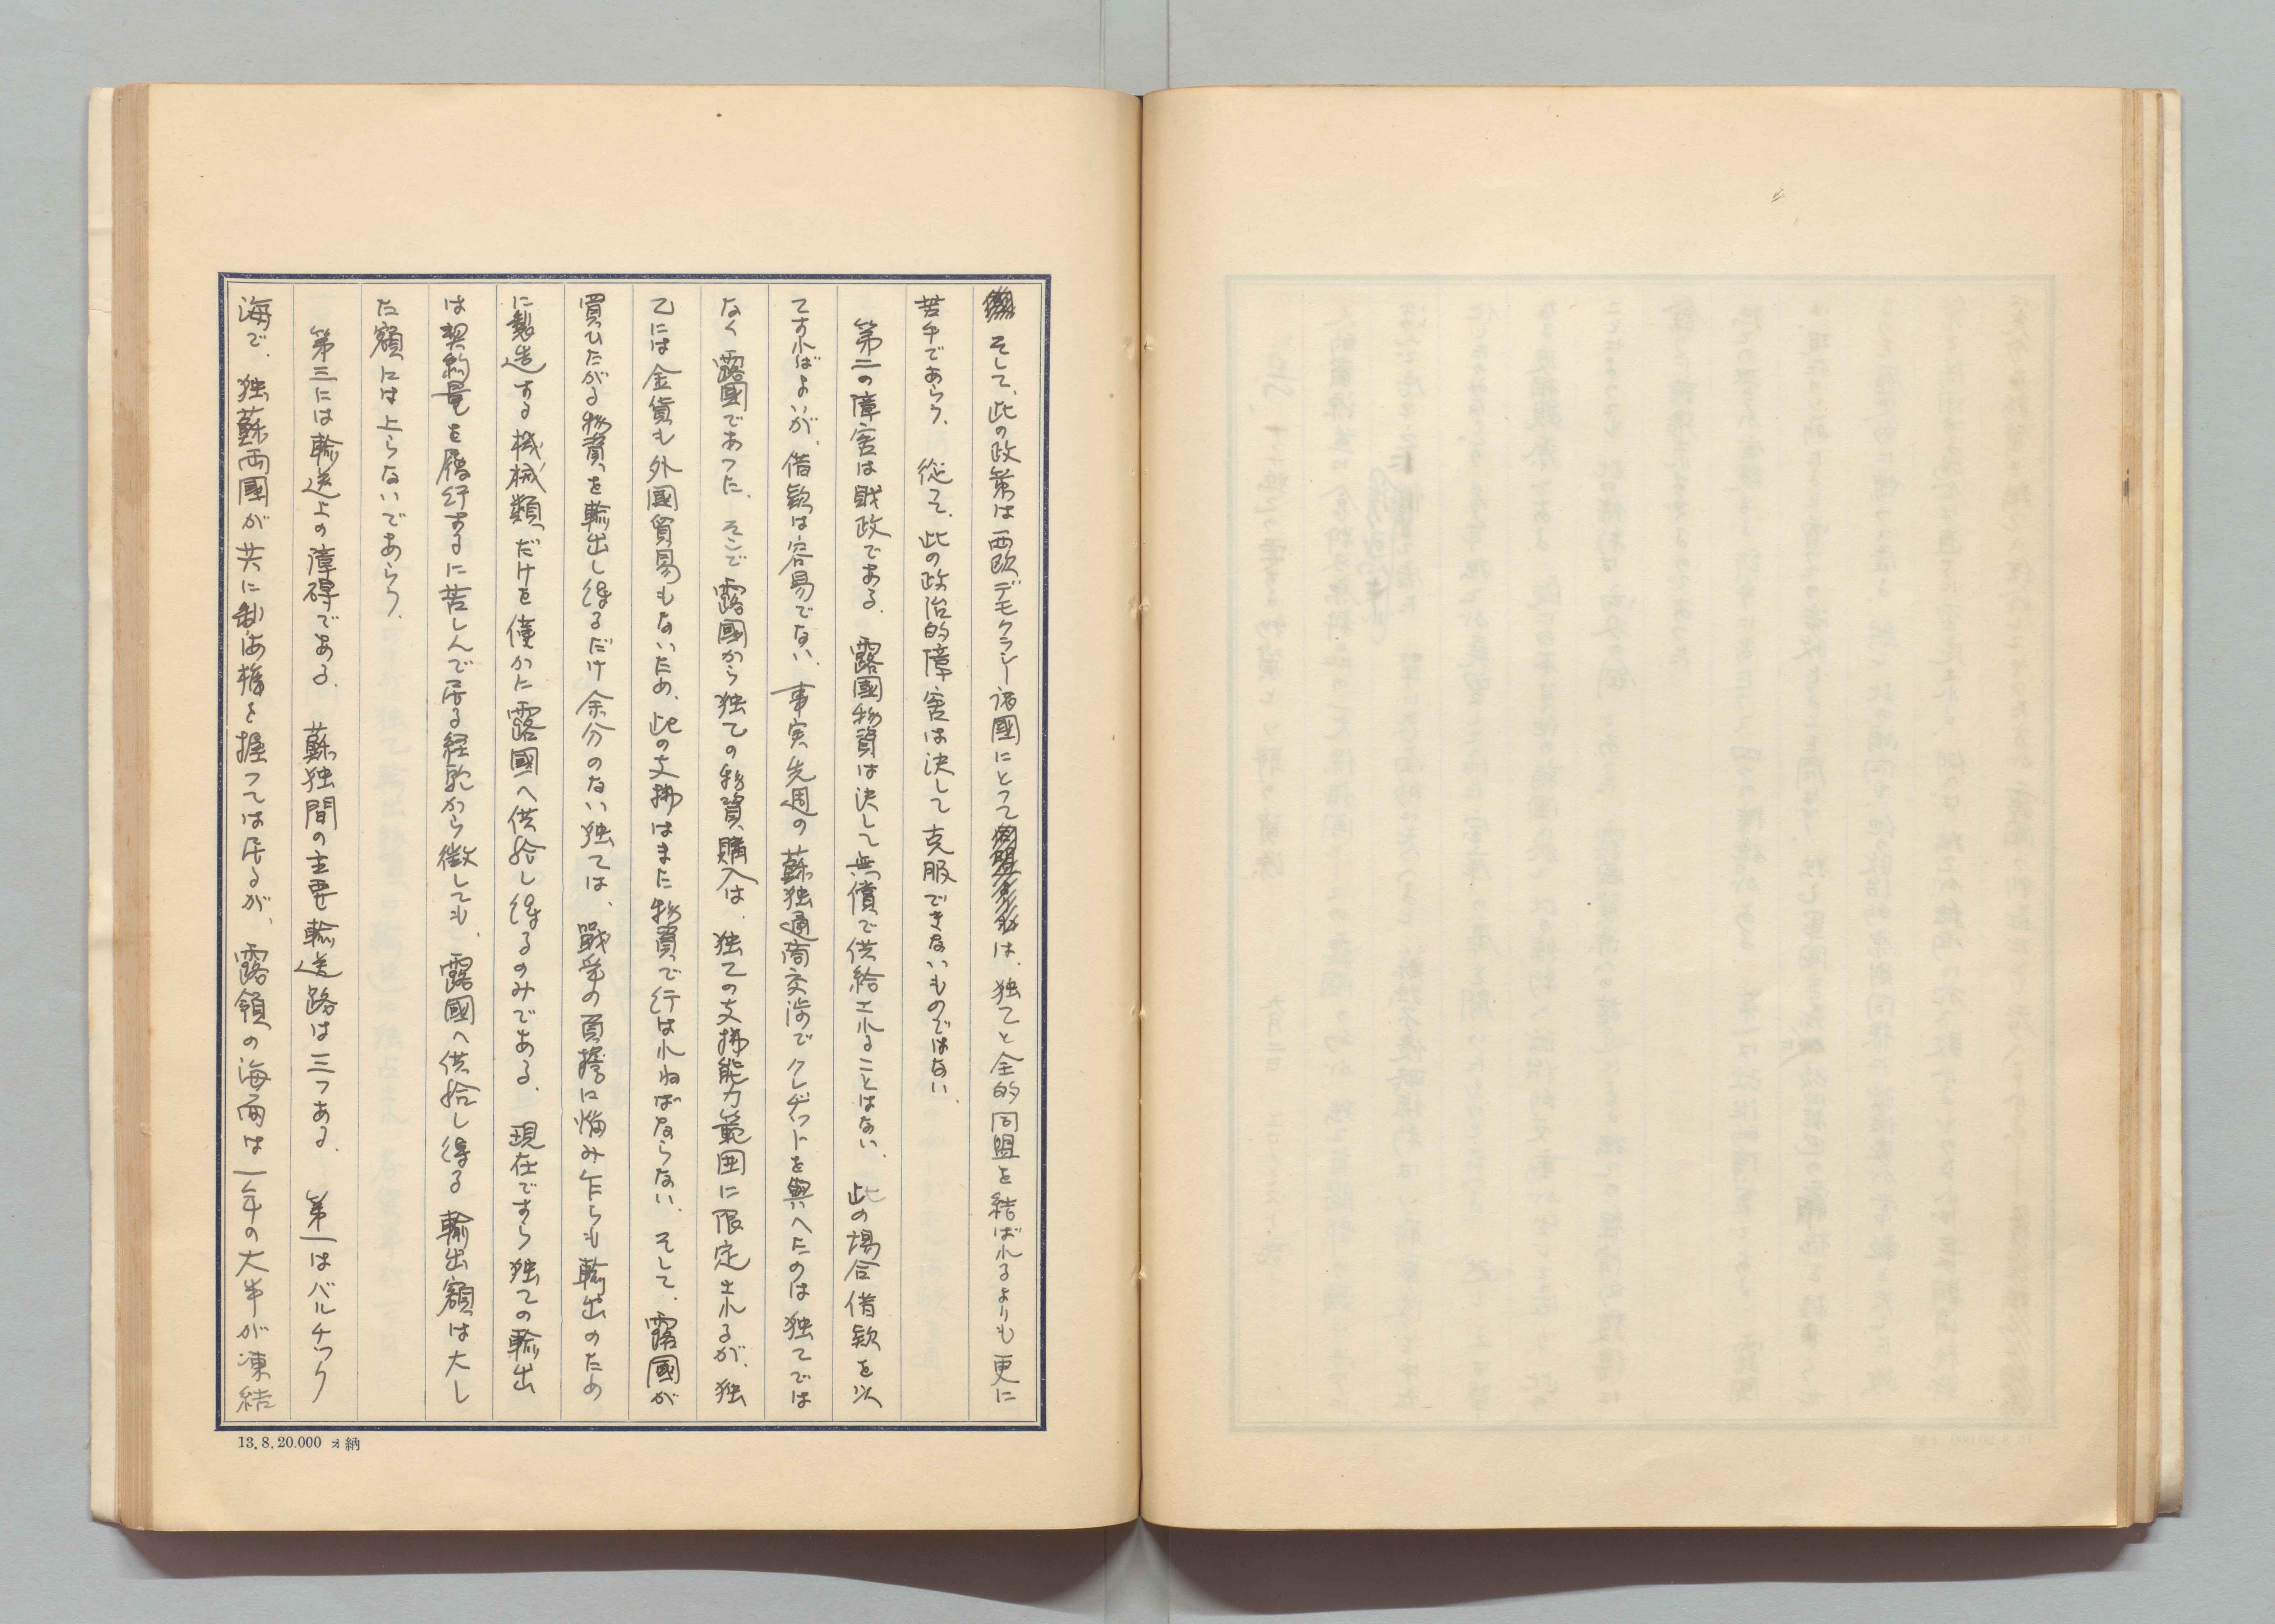 そして、此の政策は西欧デモクラシー諸國にとつては、独乙と全的同盟を結ばれるよりも更に
苦手であらう。従て、此の政治的障害は決して克服できないものではない。
第二の障害は財政である。露國物資は決して無償で供給されることはない。此の場合借款を以
てすればよいが、借款は容易でない。事実先週の蘇独通商交渉でクレヂットを與へたのは独乙では
なく露國であつた。そこで露國から独乙の物資購入は、独乙の支拂能力範囲に限定されるが、独
乙には金貨も外國貿易もないため、此の支拂はまた物資で行はれねばならない。そして、露國が
買ひたがる物資を輸出し得るだけ余分のない独乙は、戰争の負擔に悩み乍らも輸出のため
に製造する機械類だけを僅かに露國へ供給し得るのみである。現在ですら独乙の輸出
は契約量を履行するに苦しんで居る経驗から徴しても、露國へ供給し得る輸出額は大し
た額には上らないであらう。
第三には輸送上の障碍である。蘇独間の主要輸送路は三つある。第一はバルチック
海で、独蘇両國が共に制海権を握つては居るが、露領の海面は一年の大半が凍結
13.8.20.000 オ納